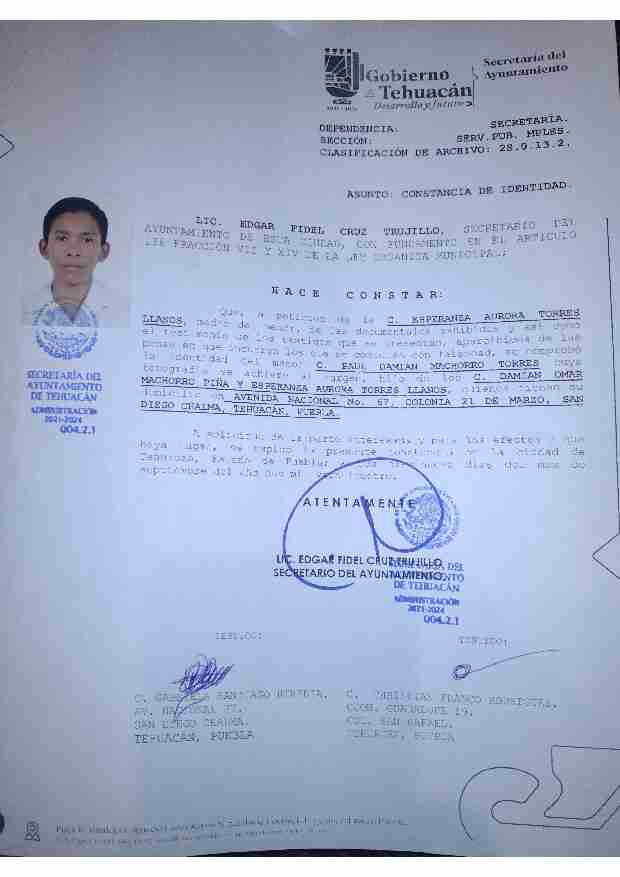 Gobierno
de Tehuacán
Desarrollo y futuro
2021 - 2024
Secretaría del
Ayuntamiento
DEPENDENCIA: SECRETARÍA.
SECCIÓN: SERV.PUB. MPLES.
CLASIFICACIÓN DE ARCHIVO: 28.0.13.2.
ASUNTO: CONSTANCIA DE IDENTIDAD.
LIC. EDGAR FIDEL CRUZ TRUJILLO, SECRETARIO DEL
AYUNTAMIENTO DE ESTA CIUDAD, CON FUNDAMENTO EN EL ARTICULO
138 FRACCIÓN VII Y XIV DE LA LEY ORGANICA MUNICIPAL;
HACE CONSTAR:
Que, a petición de la C. ESPERANZA AURORA TORRES
LLANOS, madre del menor, de las documentales exhibidas y así como
el testimonio de los testigos que se presentan, apercibidos de las
penas en que incurren los que se conducen con falsedad, se comprobó
la identidad del menor C. RAUL DAMIAN MACHORRO TORRES cuya
fotografía se adhiere al margen, hijo de los C. DAMIAN OMAR
MACHORRO PIÑA Y ESPERANZA AURORA TORRES LLANOS, quienes tienen su
domicilio en AVENIDA NACIONAL No. 67, COLONIA 21 DE MARZO, SAN
DIEGO CHALMA, TEHUACÁN, PUEBLA.
A solicitud de la parte interesada y para los efectos a que
haya lugar, se expide la presente constancia en la ciudad de
Tehuacán, Estado de Puebla; a los días del mes de
septiembre del año dos mil veinticuatro.
SECRETARÍA DEL
AYUNTAMIENTO
DE TEHUACÁN
ADMINISTRACIÓN
2021-2024
004.2.1
ATENTAMENTE
LIC. EDGAR FIDEL CRUZ TRUJILLO.
SECRETARIO DEL AYUNTAMIENTO.
SECRETARÍA DEL
AYUNTAMIENTO
DE TEHUACÁN
ADMINISTRACIÓN
2021-2024
004.2.1
TESTIGO: TESTIGO:
C. SANTIAGO HEREDIA. C. FRANCO
AV. NACIONAL
SAN DIEGO CHALMA.
TEHUACÁN, PUEBLA
GUADALUPE 19,
COL. SAN RAFAEL.
TEHUACÁN, PUEBLA